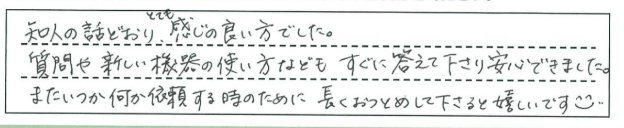 知人の話どおり、とても感じの良い方でした。
質問や新しい機器の使い方なども すぐに答えて下さり安心できました。
またいつか何か依頼する時のために 長くおつとめして下さると嬉しいです☺